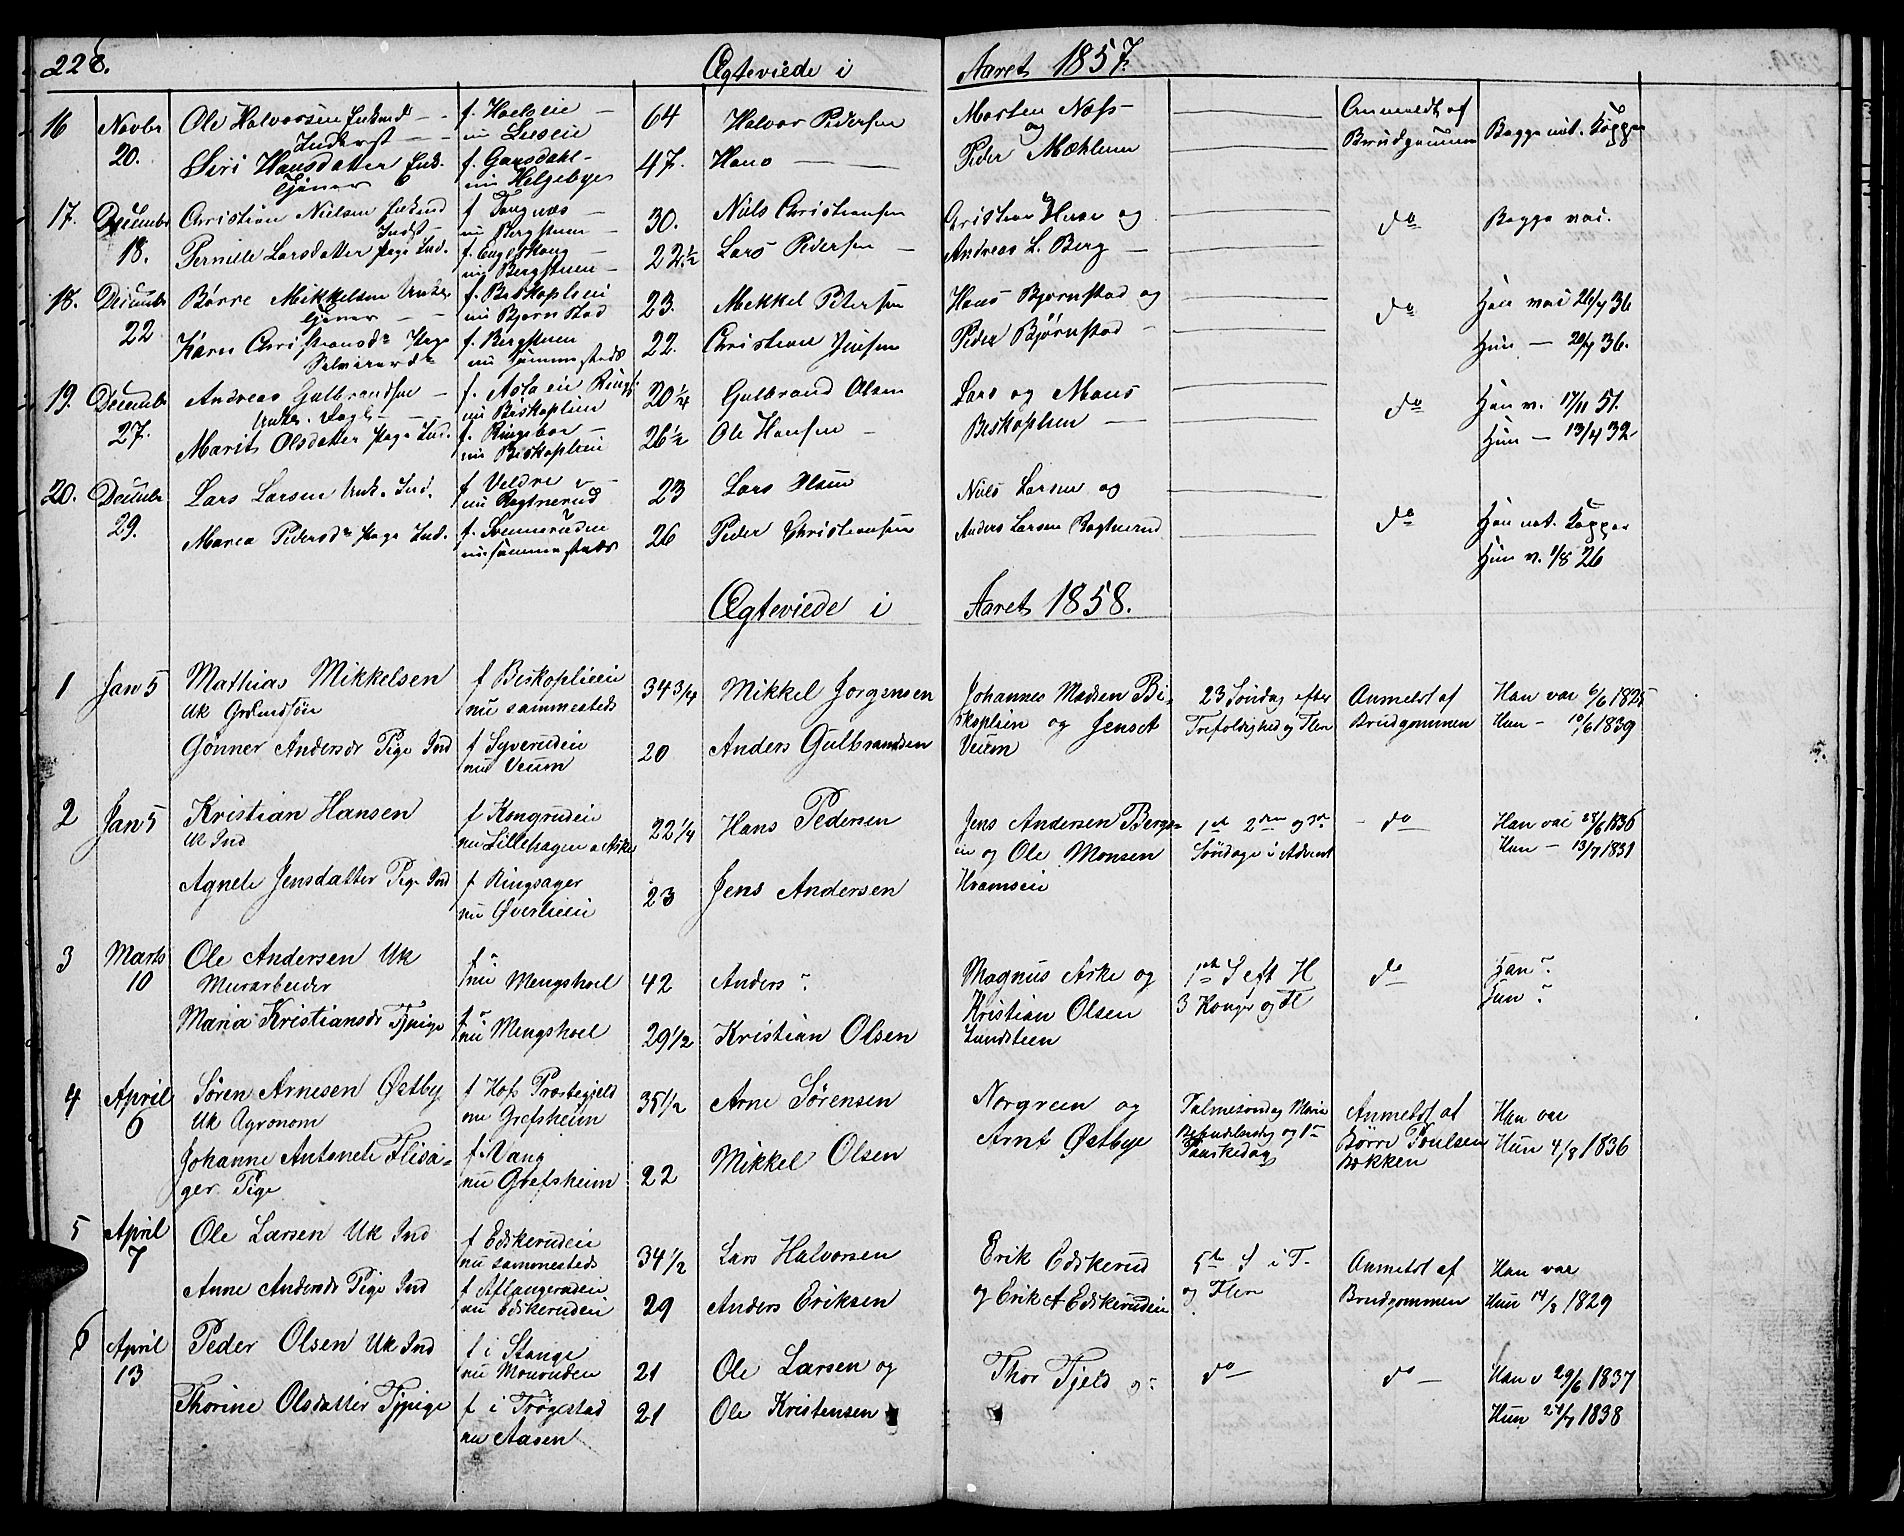 228. Ægteviede i Aaret 1857.
16 Novbr 20. Ole Halvorsen Enkmd Inderst f. Hoelseie nu Lieseie 64 Halvor Pedersen Morten Næss og Anmeldt af Brudgommen Begge nat. Kopper
Siri Hansdatter Enk. Tjener f. Gaasdahl nu Helgebye 47. Hans Peder Mæhlum
17. Decembr 18. Christian Nielsen Enkmd Indst f Tangnæs nu Bergstuen 30. Niels Christiansen og do Begge vac.
Pernille Larsdatter Pige Ind. f. Engeshaug nu Bergstuen 22 1/2 Lars Pedersen Andreas L. Berg
18. Decembr 22 Børre Mikkelsen Unkr Tjener f. Biskoplieei nu Bjørnstad 23. Mekkel Petersen Hans Bjørnstad og do Han vac 36
Karn Christiansdr Pige f. Bergstuen nu sammesteds 22. Christian Jensen Peder Bjørnstad Hun – 36.
19. Decembr 27. Andreas Gulbrandsen Unkr. Dagl. f. nu Biskoplien 20 1/4 Gulbrand Olsen Lars og Mons Biskoplien do Han v. 17/11 51.
Marit Olsdatter Pige Ind. f. Ringeboe nu Biskoplien 26 1/2 Ole Hansen Hun – 13/4 32
20. Decembr 29. Lars Larsen Unk. Ind. f Veldre nu Ragtnerud 23 Lars Olsen Niels Larsen og do Han nat. Kopper
Marea Pedersdr Pige Ind. f. Svenneruden nu sammesteds 26 Peder Christiansen Anders Larsen Ragtnerud Hun v. 1/8 26
Ægteviede i Aaret 1858.
1 Jan 5 Mathias Mikkelsen Uk Grdmdsøn f Biskoplieein nu sammesteds 34 3/4 Mikkel Jorgensen Johannes Madsen Biskoplien og Jens A Veum 23 Søndag efter Trefoldighed og Flere Anmeldt af Brudgommen Han var 6/6 1825
Gønner Andersdr Pige Ind f Syverudein nu Veum 20 Anders Gulbrandsen Hun – 10/6 1839
2 Jan 5 Kristian Hansen Uk Ind f Kongrudein nu Lillehagen a Aske 22 1/4 Hans Pedersen Jens Andersen Bergsein og Ole Monsen Hramseie 1st 2den og 3die Søndage i Advent do Han vac 28/6 1836
Agnete Jensdatter Pige Ind f Ringsager nu Øverlieeie 23 Jens Andersen Hun – 13/7 1831
3 Marts 10 Ole Andersen Uk Murarbeider f ? nu Mengshoel 42 Anders ? Magnus Aske og Kristian Olsen Lundsteen 1ste S eft H 3 Konger og Fl do Han ?
Maria Kristiansdr Tjpige f ? nu Mengshoel 29 1/2 Kristian Olsen Hun ?
4 April 6 Søren Arnesen Østby Uk Agronom f Hofs Præstegjeld nu Grefsheim 35 1/2 Arne Sørensen Norgreen og Arnt Østbye Palmesøndag Marie Bebudelsdag og 1ste Paaskedag Anmeldt af Børre Poulsen Bekken Han var
Johanne Antonete Flisager Pige f Vang nu Grefsheim 22 Mikkel Olsen Hun 4/8 1836
5 April 7 Ole Larsen Uk Ind f Edskerudein nu sammesteds 34 1/2 Lars Halvorsen Erik Edskerud og Erik A Edskerudein 5te S i F og Flere Anmeldt af Brudgommen Han var
Anne Andersdr Pige Ind f Aflangerudein nu Edskerudein 29 Anders Eriksen Hun 14/3 1829
6 April 13 Peder Olsen Uk Ind f i Stange nu Moeruden 21 Ole Larsen og Thor Fjeld og ? do do Han v 29/6 1837
Thorine Olsdatter Tjpige f i Trøgestad nu Aasen 21 Ole Kristensen Hun 24/7 1838